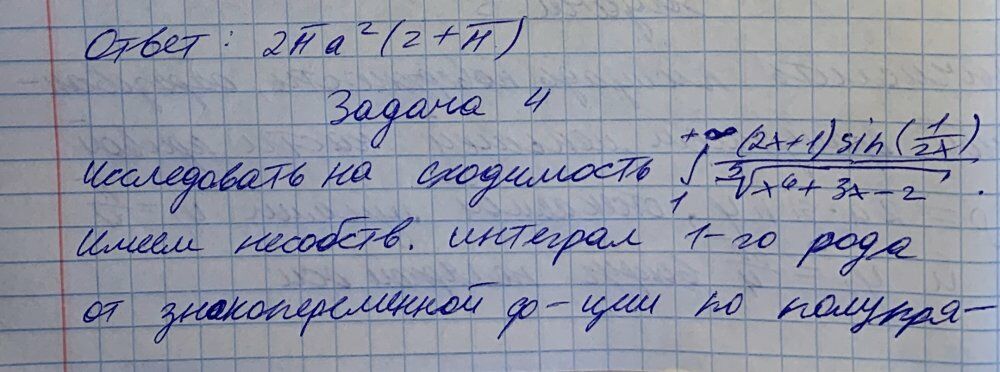 Ответ: 2π a²(2+π)
Задача 4
Исследовать на сходимость ∫₁^{+∞} (2x+1) sin(1/2x) / ⁵√(x⁶+3x-2).
Имеем несобств. интеграл 1-го рода
от знакопеременной ф-ции по полупря-